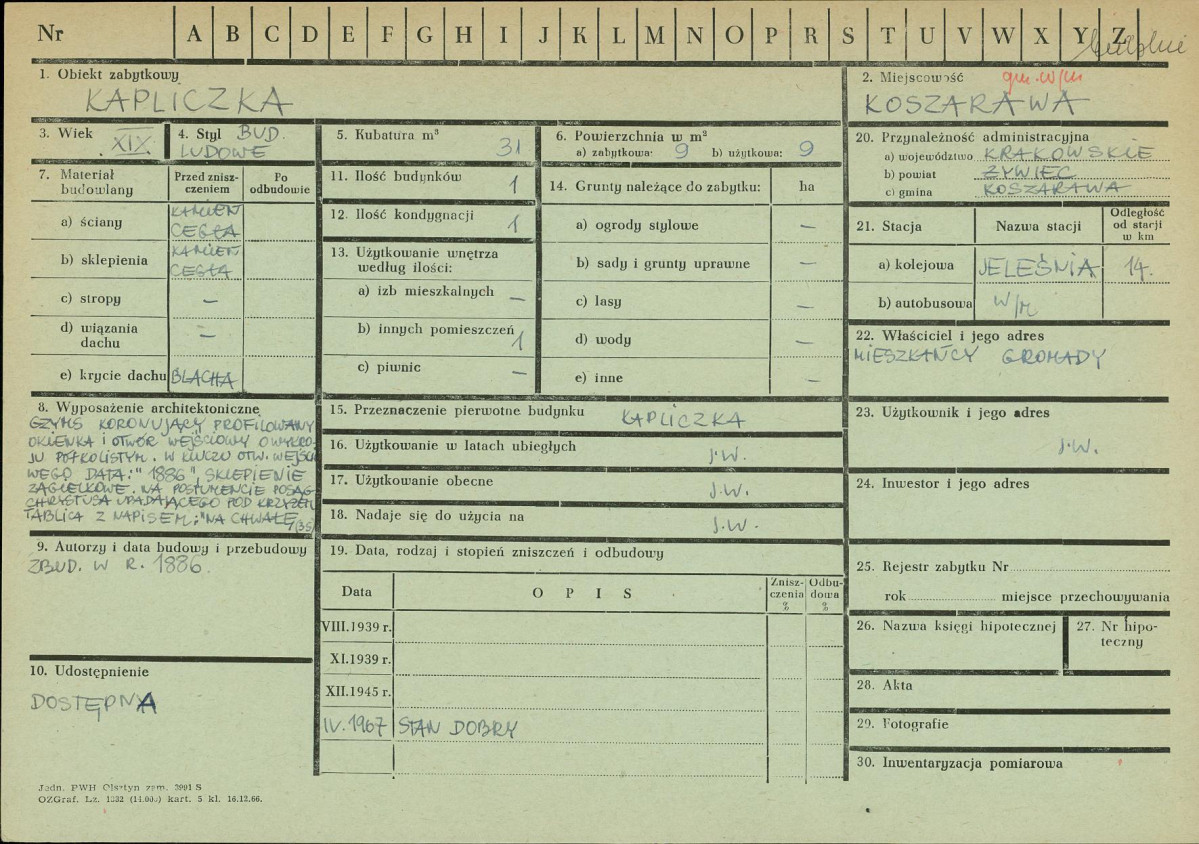 Nr A B C D E F G H I J K L M N O P R S T U V W X Y Z
1. Obiekt zabytkowy
KAPLICZKA
2. Miejscowość gm. w/m
KOSZARAWA
3. Wiek XIX.
4. Styl BUD. LUDOWE
5. Kubatura m³ 31
6. Powierzchnia w m²
a) zabytkowa: 9 b) użytkowa: 9
20. Przynależność administracyjna
a) województwo KRAKOWSKIE
b) powiat ŻYWIEC
c) gmina KOSZARAWA
7. Materiał budowlany
Przed zniszczeniem
Po odbudowie
a) ściany KAMIEŃ CEGŁA
b) sklepienia KAMIEŃ CEGŁA
c) stropy —
d) wiązania dachu —
e) krycie dachu BLACHA
11. Ilość budynków 1
12. Ilość kondygnacji 1
13. Użytkowanie wnętrza według ilości:
a) izb mieszkalnych —
b) innych pomieszczeń 1
c) piwnic —
14. Grunty należące do zabytku: ha
a) ogrody stylowe —
b) sady i grunty uprawne —
c) lasy —
d) wody —
e) inne —
21. Stacja
Nazwa stacji
Odległość od stacji w km
a) kolejowa JELEŚNIA 14.
b) autobusowa w/m
22. Właściciel i jego adres
MIESZKAŃCY GROMADY
8. Wyposażenie architektoniczne
GZYMS KORONUJĄCY PROFILOWANY
OKIENKA I OTWÓR WEJŚCIOWY O WYKRO-
JU PÓŁKOLISTYM. W KLUCZU OTW. WEJŚCIO
WEGO DATA: "1886", SKLEPIENIE
ŻAGIELKOWE. NA POSTUMENCIE POSĄG
CHRYSTUSA UPADAJĄCEGO POD KRZYŻEM
TABLICA Z NAPISEM: "NA CHWAŁĘ /35/
15. Przeznaczenie pierwotne budynku KAPLICZKA
16. Użytkowanie w latach ubiegłych J.W.
17. Użytkowanie obecne J.W.
18. Nadaje się do użycia na J.W.
23. Użytkownik i jego adres
J.W.
24. Inwestor i jego adres
9. Autorzy i data budowy i przebudowy
ZBUD. W R. 1886.
19. Data, rodzaj i stopień zniszczeń i odbudowy
Data
O P I S
Zniszczenia %
Odbudowa %
VIII.1939 r.
XI.1939 r.
XII.1945 r.
IV.1967 STAN DOBRY
25. Rejestr zabytku Nr
rok miejsce przechowywania
26. Nazwa księgi hipotecznej
27. Nr hipoteczny
10. Udostępnienie
DOSTĘPNA
28. Akta
29. Fotografie
30. Inwentaryzacja pomiarowa
Jedn. PWH Olsztyn zam. 3991 S
OZGraf. Lz. 1332 (14.000) kart. 5 kl. 16.12.66.